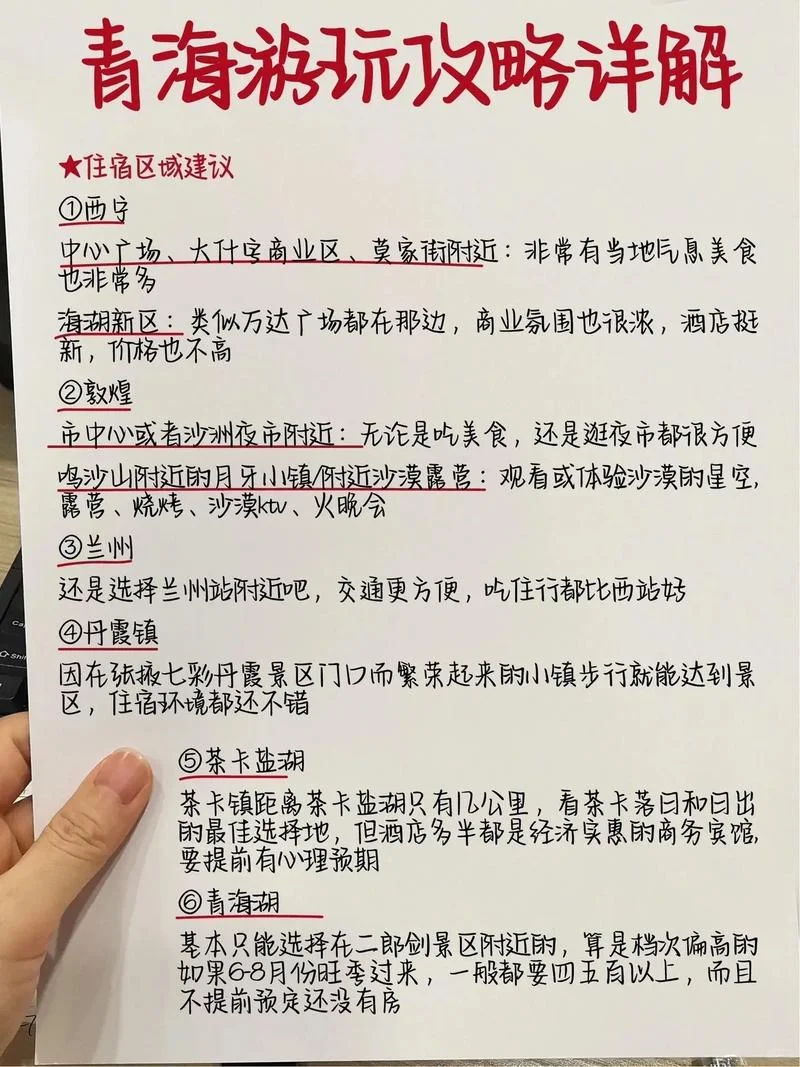 青海游玩攻略详解
★住宿区域建议
①西宁
中心广场、大什字商业区、莫家街附近：非常有当地气息美食
也非常多
海湖新区：类似万达广场都在那边，商业氛围也很浓，酒店挺
新，价格也不高
②敦煌
市中心或者沙洲夜市附近：无论是吃美食，还是逛夜市都很方便
鸣沙山附近的月牙小镇/附近沙漠露营：观看或体验沙漠的星空，
露营、烧烤、沙漠ktv、火晚会
③兰州
还是选择兰州站附近吧，交通更方便，吃住行都比西站好
④丹霞镇
因在张掖七彩丹霞景区门口而繁荣起来的小镇步行就能达到景
区，住宿环境都还不错
⑤茶卡盐湖
茶卡镇距离茶卡盐湖只有几公里，看茶卡落日和日出
的最佳选择地，但酒店多半都是经济实惠的商务宾馆，
要提前有心理预期
⑥青海湖
基本只能选择在二郎剑景区附近的，算是档次偏高的
如果6-8月份旺季过来，一般都要四五百以上，而且
不提前预定还没有房
Shift